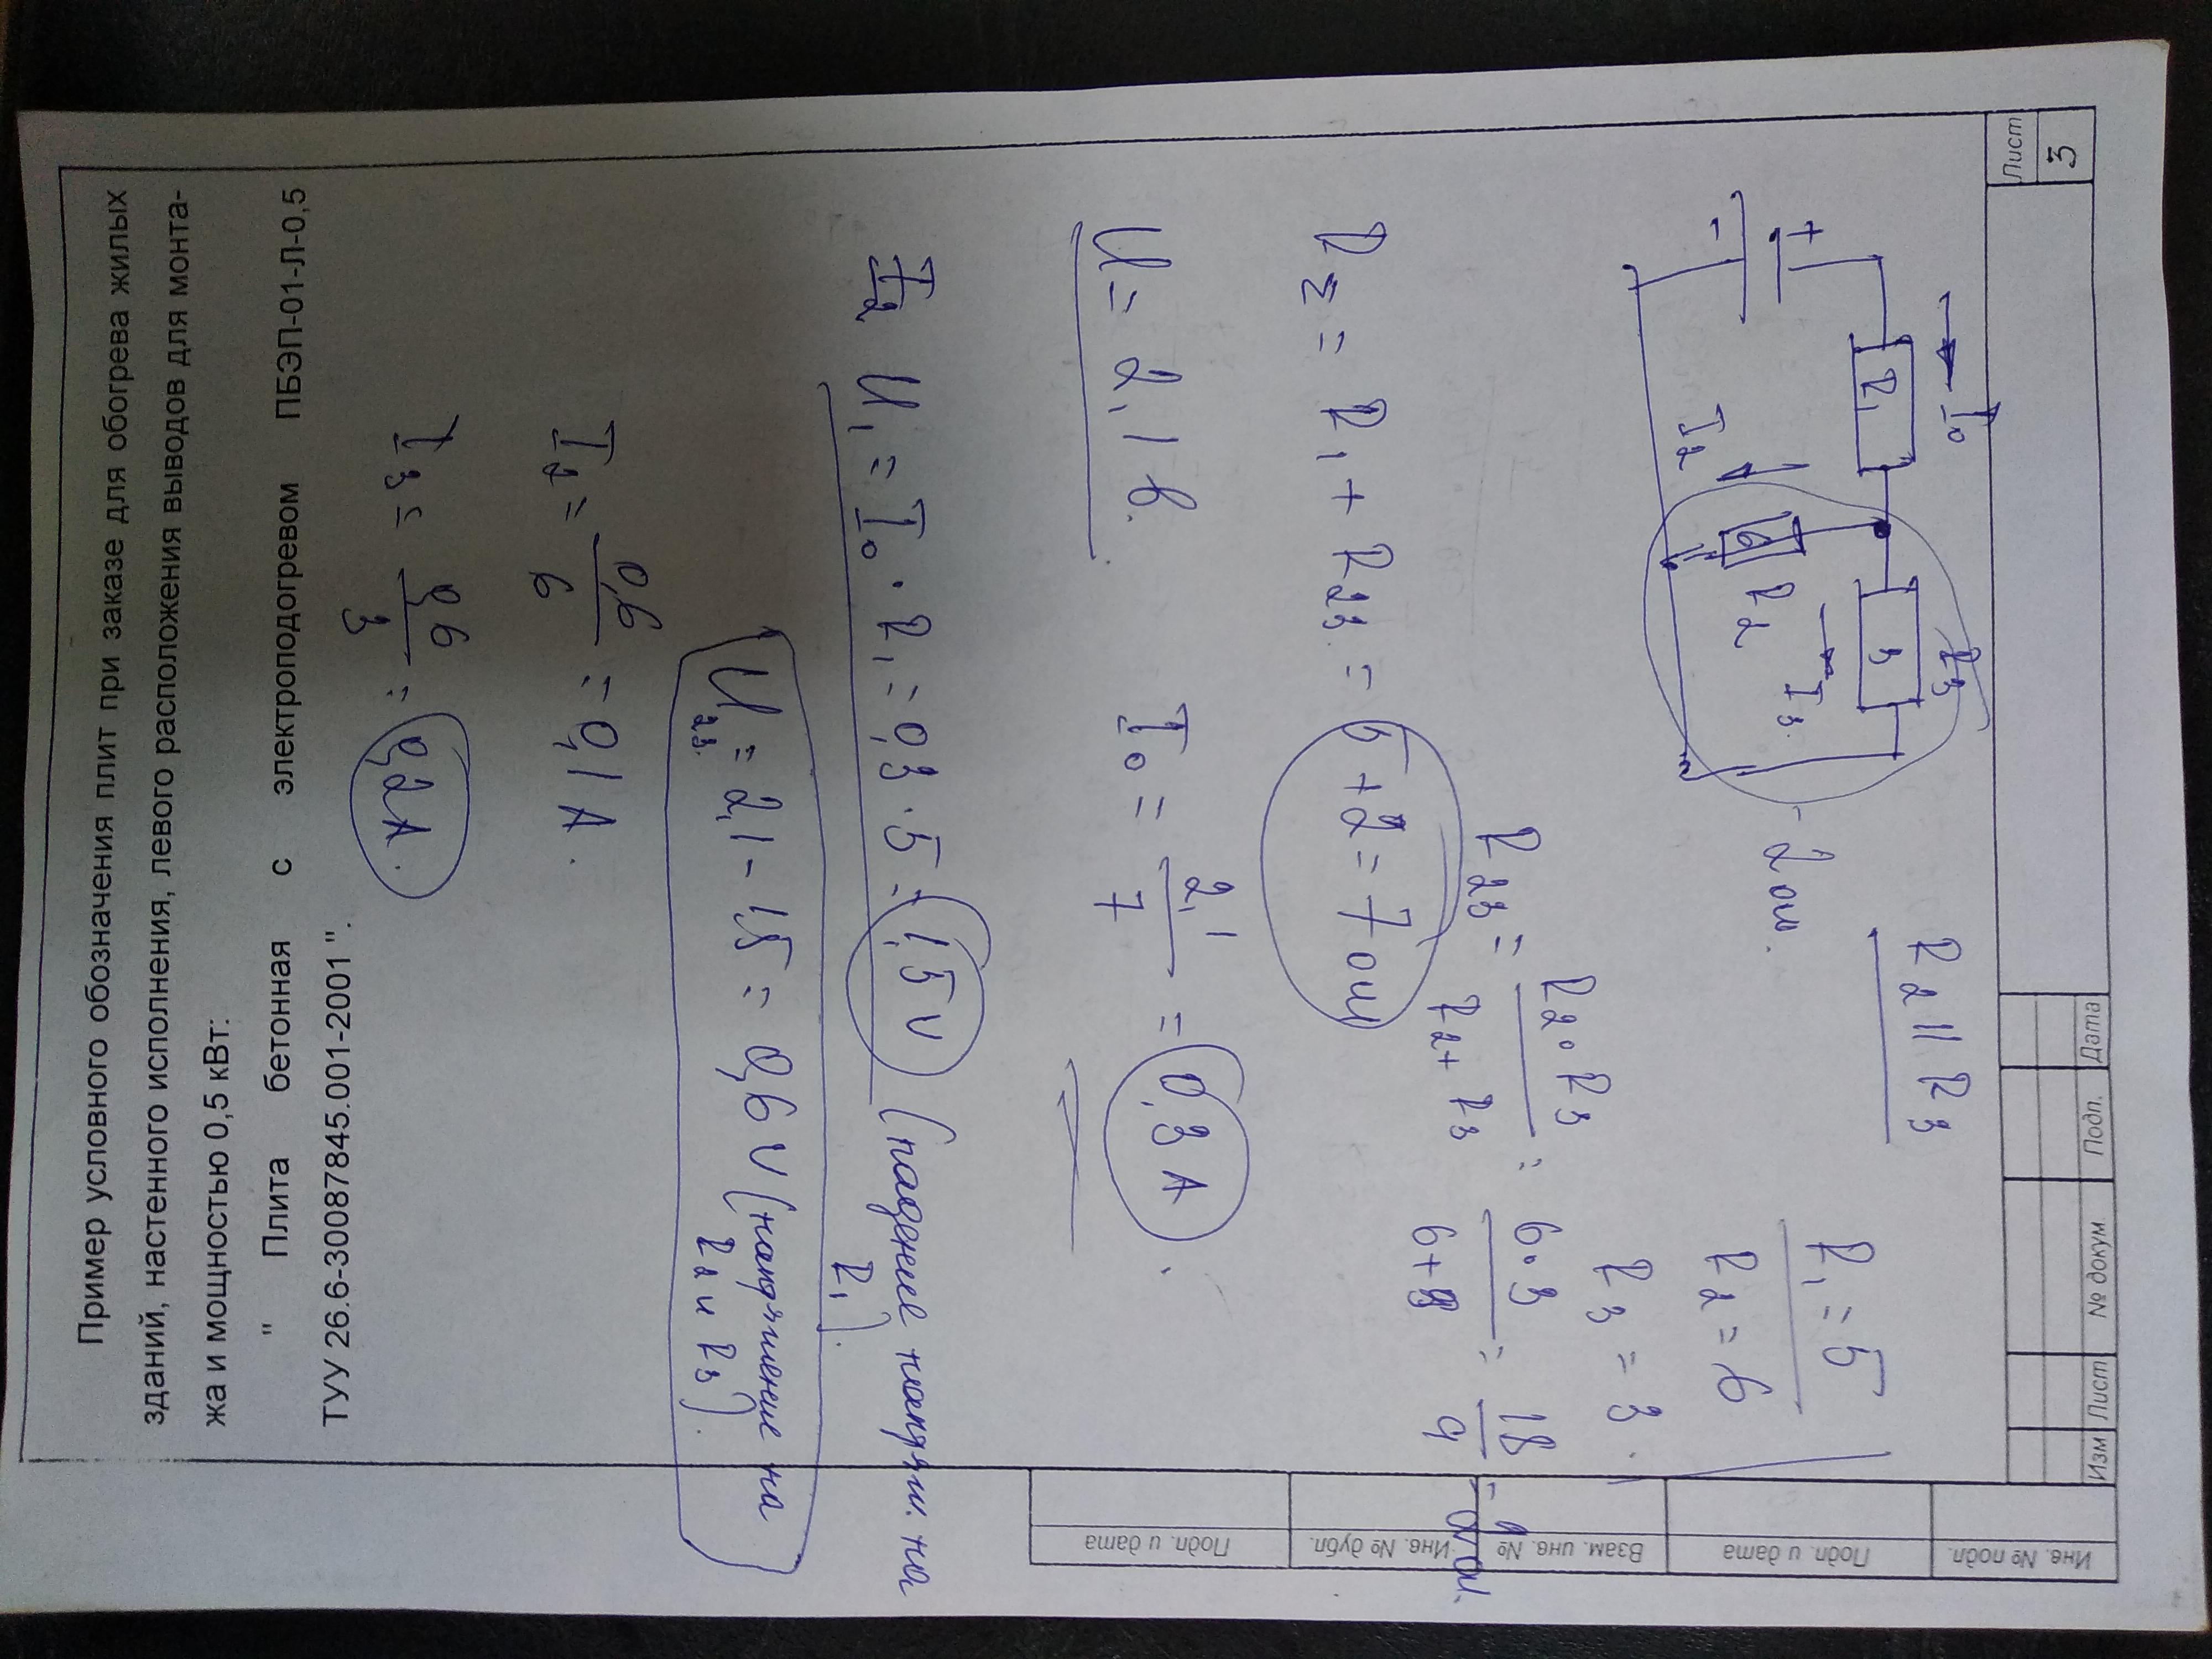 Пример условного обозначения плит при заказе для обогрева жилых
зданий, настенного исполнения, левого расположения выводов для монта-
жа и мощностью 0,5 кВт:
" Плита бетонная с электроподогревом ПБЭП-01-Л-0,5
ТУУ 26.6-30087845.001-2001 ".
I₀
R₁
I₂
6
R₂
3
R₃
I₃
+
-
- 2 ом.
R₂ || R₃
R₁ = 5
R₂ = 6
R₃ = 3
R₂₃ = R₂ · R₃ / R₂ + R₃ = 6·3 / 6+3 = 18 / 9 = 2 ом.
R = R₁ + R₂₃ = 5 + 2 = 7 ом
U = 2,1 в.
I₀ = 2,1 / 7 = 0,3 А.
U₁ = I₀ · R₁ = 0,3 · 5 = 1,5 v (падение напряж. на
R₁).
U₂,₃ = 2,1 - 1,5 = 0,6 v (напряжение на
R₂ и R₃).
I₂ = 0,6 / 6 = 0,1 А.
I₃ = 0,6 / 3 = 0,2 А.
Изм
Лист
№ докум.
Подп.
Дата
Лист
3
Инв. № подл.
Подп. и дата
Взам. инв. №
Инв. № дубл.
Подп. и дата